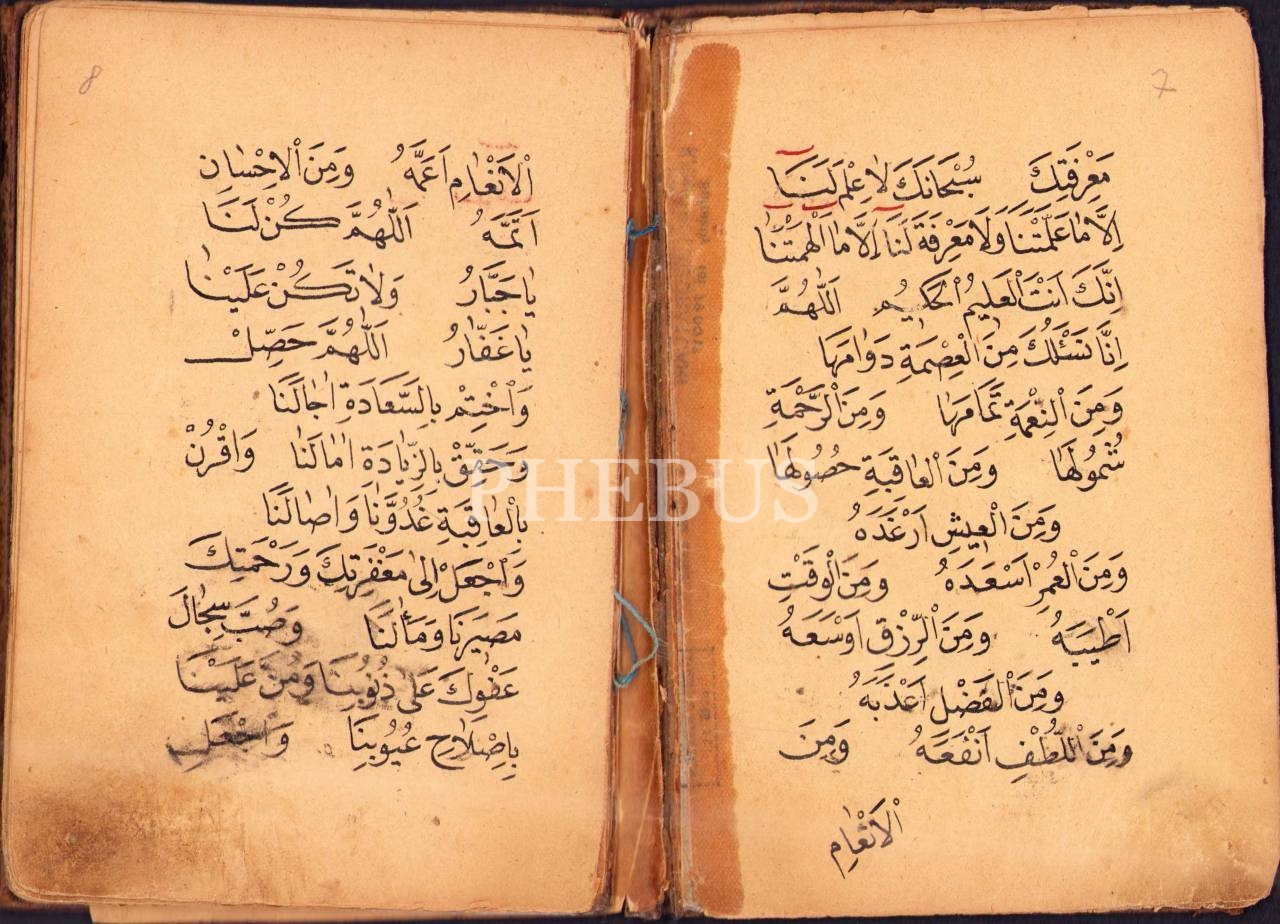 7
مَعْرِفَتِكَ سُبْحَانَكَ لَا عِلْمَ لَنَا
اِلَّا مَا عَلَّمْتَنَا وَلَا مَعْرِفَةَ لَنَا اِلَّا مَا اَلْهَمْتَنَا
اِنَّكَ اَنْتَ الْعَلِيمُ الْحَكِيمُ اَللّٰهُمَّ
اِنَّا نَسْئَلُكَ مِنَ الْعِصْمَةِ دَوَامَهَا
وَمِنَ النِّعْمَةِ تَمَامَهَا وَمِنَ الرَّحْمَةِ
شُمُولَهَا وَمِنَ الْعَافِيَةِ حُصُولَهَا
وَمِنَ الْعِيشِ اَرْغَدَهُ
وَمِنَ الْعُمْرِ اَسْعَدَهُ وَمِنَ الْوَقْتِ
اَطْيَبَهُ وَمِنَ الرِّزْقِ اَوْسَعَهُ
وَمِنَ الْفَضْلِ اَعْذَبَهُ
وَمِنَ اللُّطْفِ اَنْفَعَهُ وَمِنَ
الْاَنْعَامِ
8
الْاَنْعَامِ اَعَمَّهُ وَمِنَ الْاِحْسَانِ
اَتَمَّهُ اَللّٰهُمَّ كُنْ لَنَا
يَا جَبَّارُ وَلَا تَكُنْ عَلَيْنَا
يَا غَفَّارُ اَللّٰهُمَّ حَصِّلْ
وَاخْتِمْ بِالسَّعَادَةِ اٰجَالَنَا
وَحَقِّقْ بِالزِّيَادَةِ اٰمَالَنَا وَاقْرُنْ
بِالْعَافِيَةِ غُدُوَّنَا وَاٰصَالَنَا
وَاجْعَلْ اِلٰى مَغْفِرَتِكَ وَرَحْمَتِكَ
مَصِيرَنَا وَمَاٰلَنَا وَصُبَّ سِجَالَ
عَفْوِكَ عَلٰى ذُنُوبِنَا وَمُنَّ عَلَيْنَا
بِاِصْلَاحِ عُيُوبِنَا وَاجْعَلِ
PHEBUS